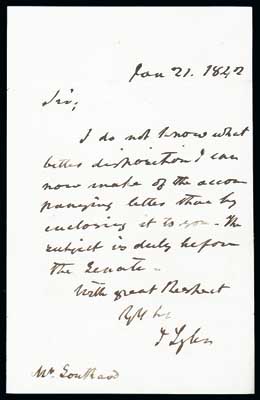 Jan 21. 1842
Sir;
I do not know what
better disposition I can
now make of the accom
panying letter than by
enclosing it to you - The
subject is duly before
the Senate -
With great Respect
J Tyler
Mr. Southard